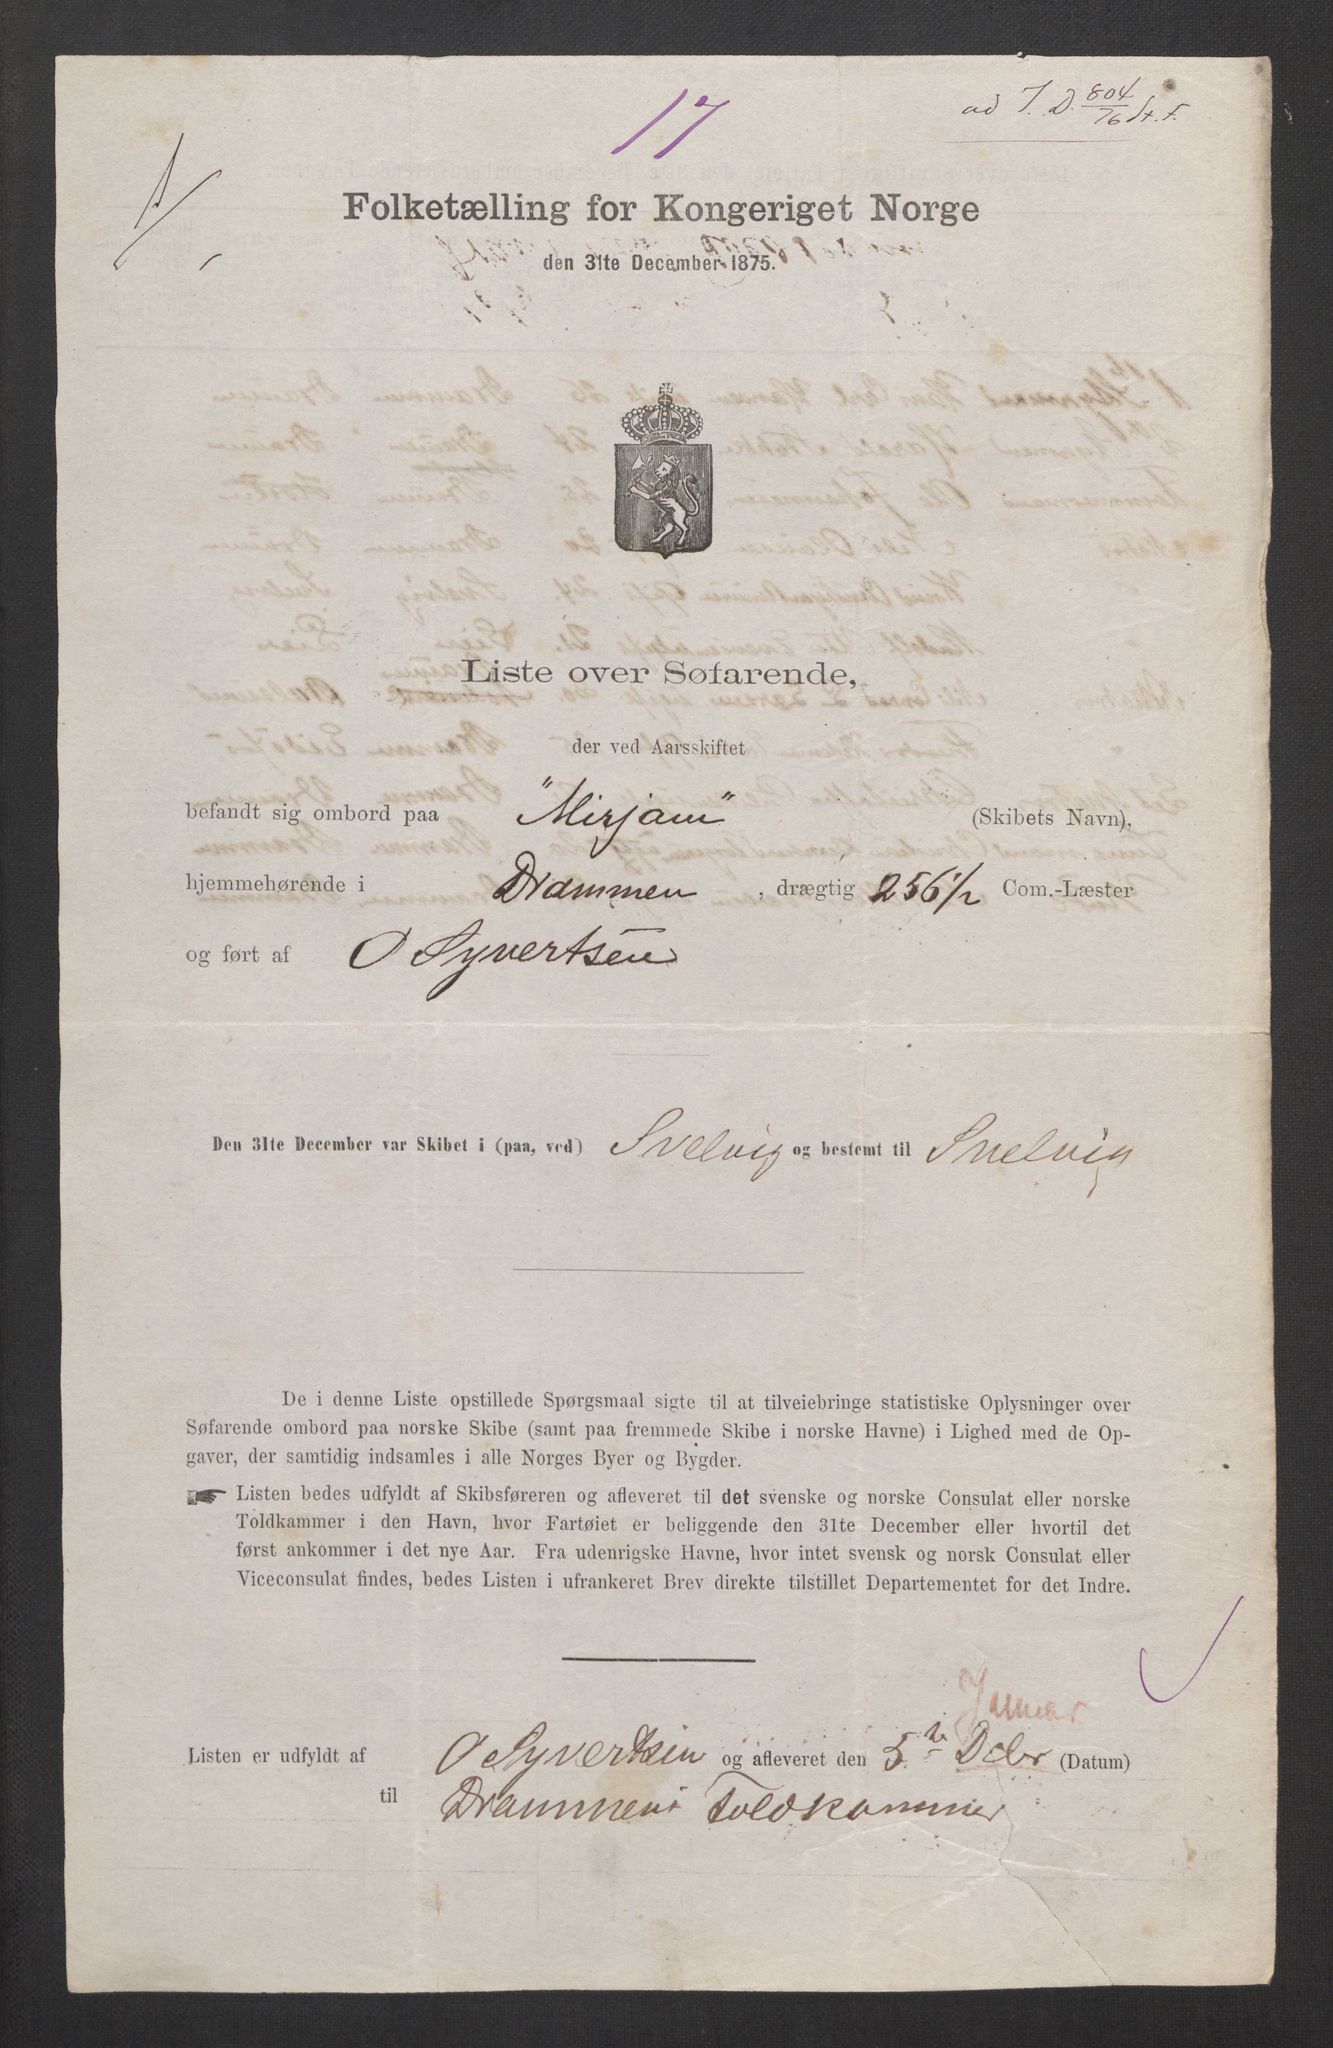 17
ad J. D. 804/76 St. F.
Folketælling for Kongeriget Norge
den 31te December 1875.
Liste over Søfarende,
der ved Aarsskiftet
befandt sig ombord paa "Mirjam" (Skibets Navn),
hjemmehørende i Drammen, drægtig 256 1/2 Com.-Læster
og ført af O Syvertsen
Den 31te December var Skibet i (paa, ved) Svelvig og bestemt til Svelvig
De i denne Liste opstillede Spørgsmaal sigte til at tilveiebringe statistiske Oplysninger over
Søfarende ombord paa norske Skibe (samt paa fremmede Skibe i norske Havne) i Lighed med de Op-
gaver, der samtidig indsamles i alle Norges Byer og Bygder.
☛ Listen bedes udfyldt af Skibsføreren og afleveret til det svenske og norske Consulat eller norske
Toldkammer i den Havn, hvor Fartøiet er beliggende den 31te December eller hvortil det
først ankommer i det nye Aar. Fra udenrigske Havne, hvor intet svensk og norsk Consulat eller
Viceconsulat findes, bedes Listen i ufrankeret Brev direkte tilstillet Departementet for det Indre.
Januar
Listen er udfyldt af O Syvertsen og afleveret den 5te Dcbr (Datum)
til Drammens Toldkammer